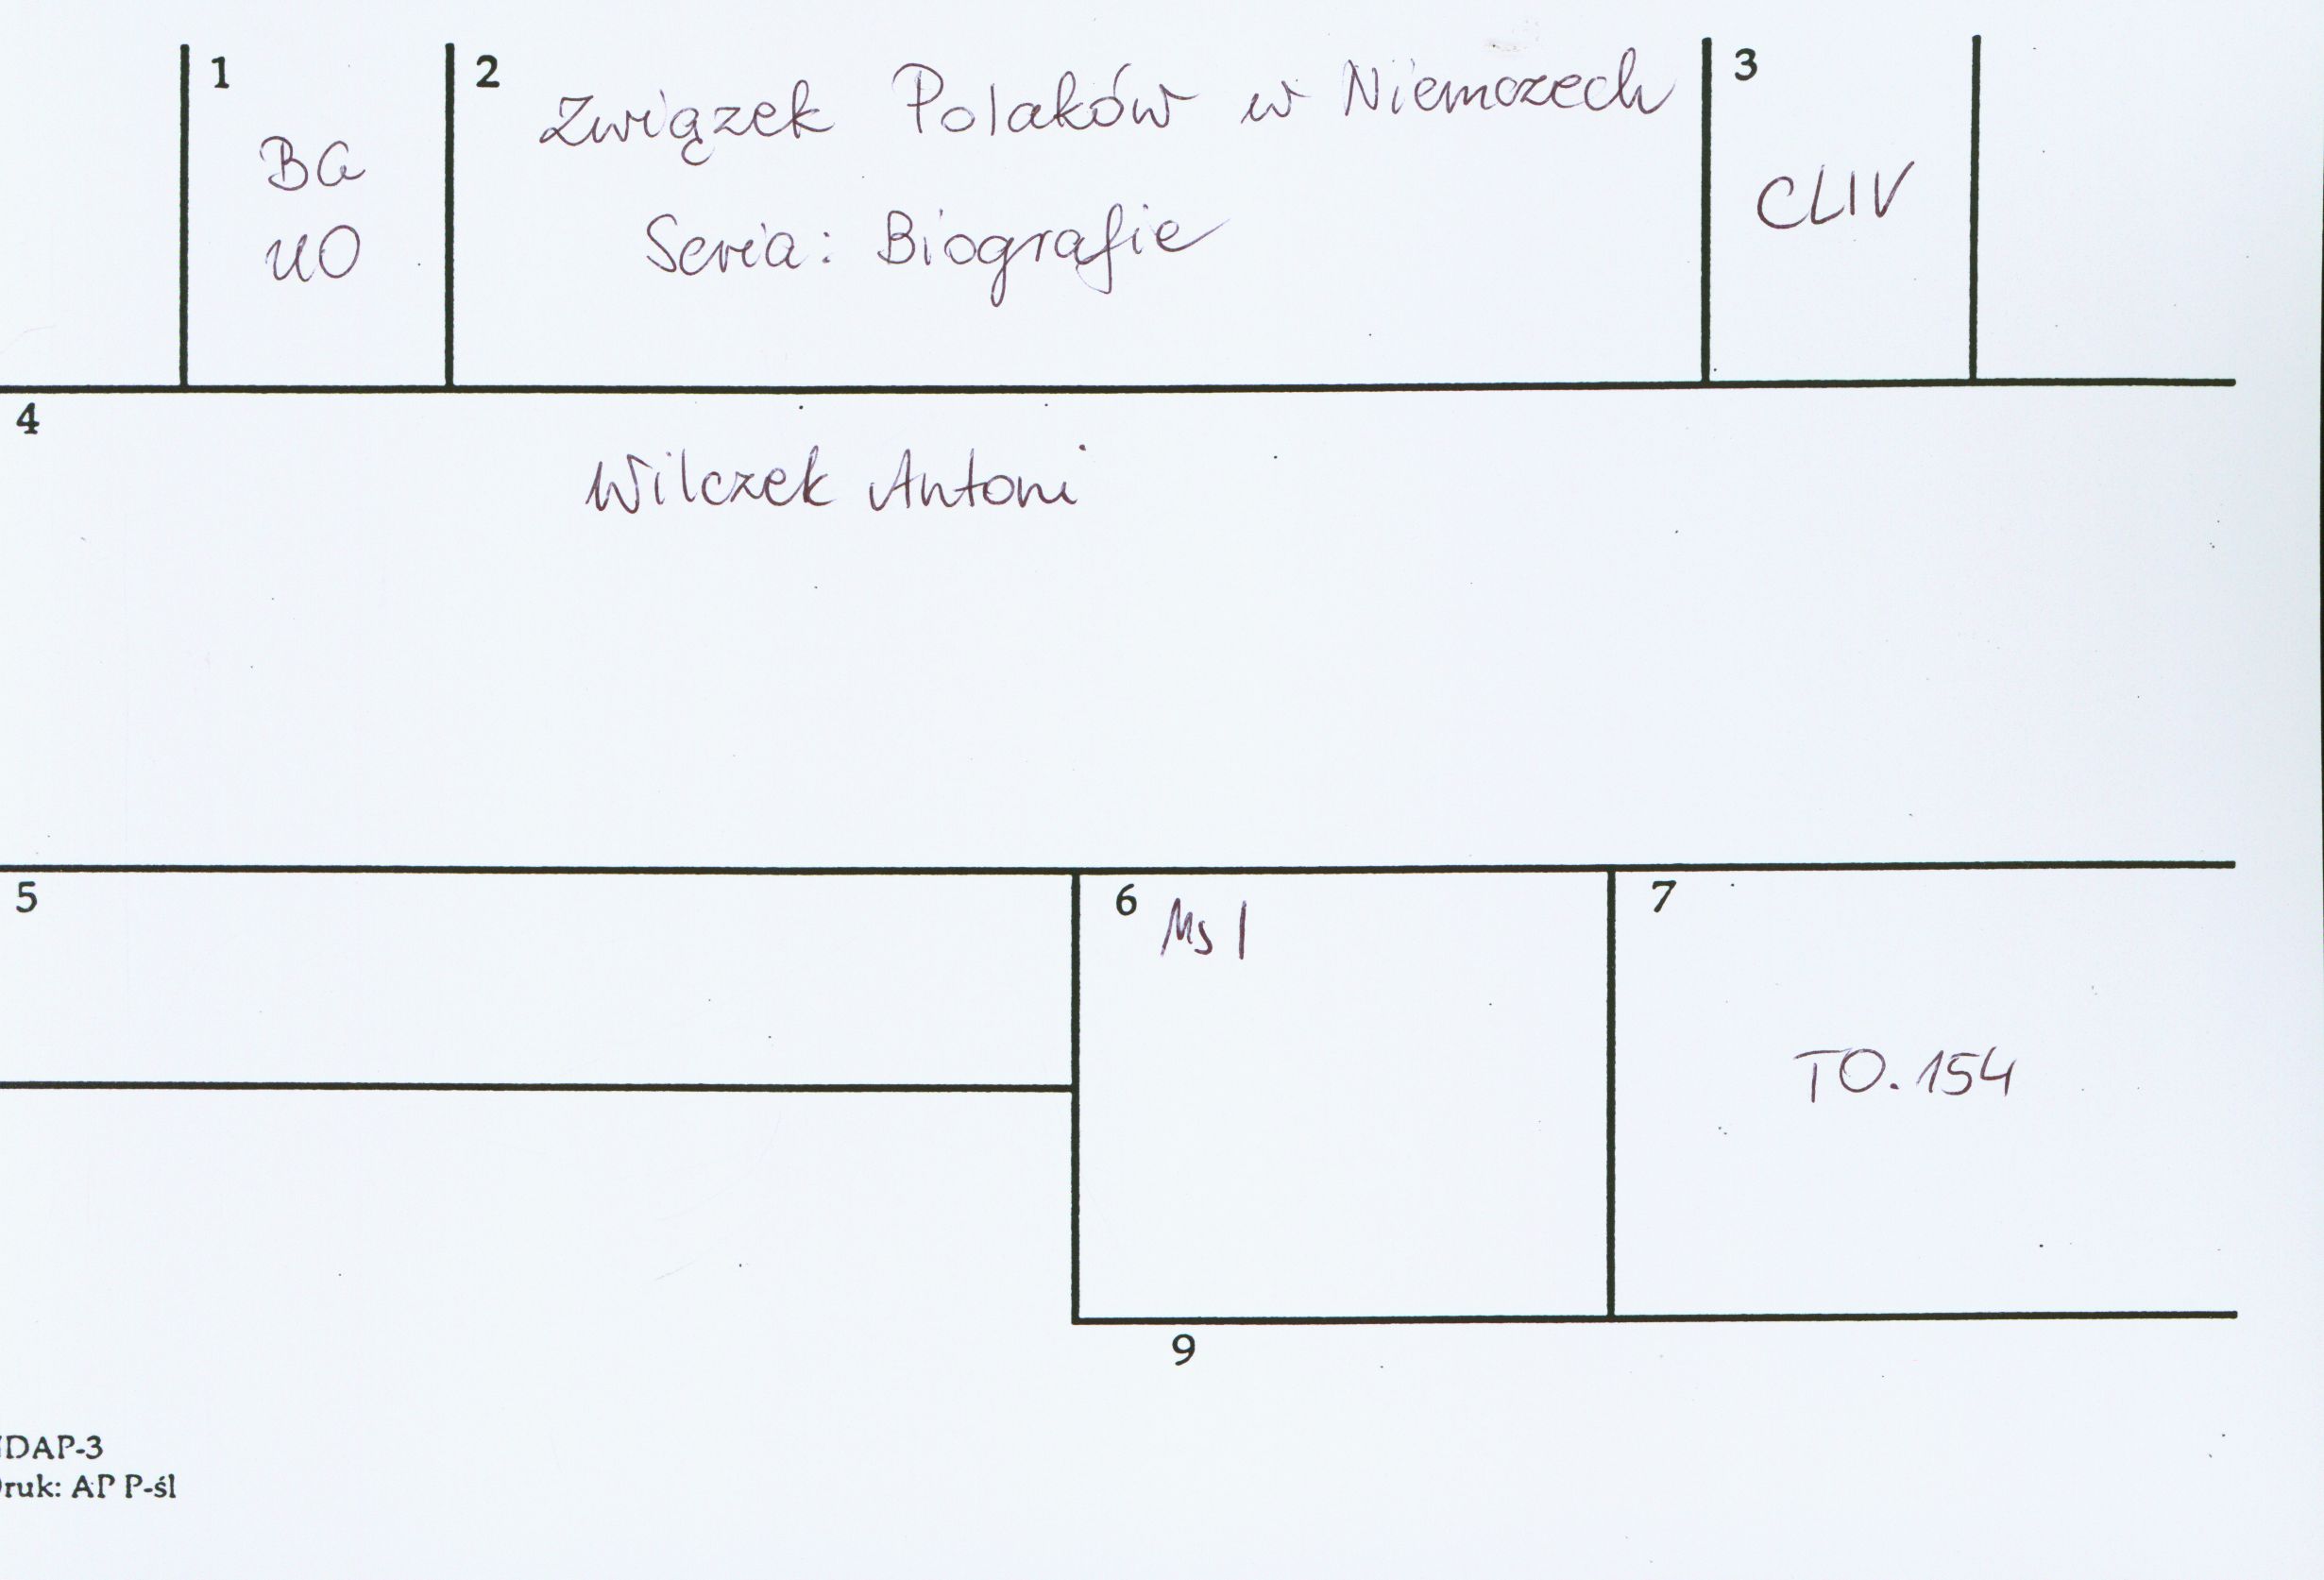 1
BG
UO
2
Związek Polaków w Niemczech
Seria: Biografie
3
CLIV
4
Wilczek Antoni
5
6
Ms I
7
TO. 154
9
DAP-3
ruk: AP P-śl